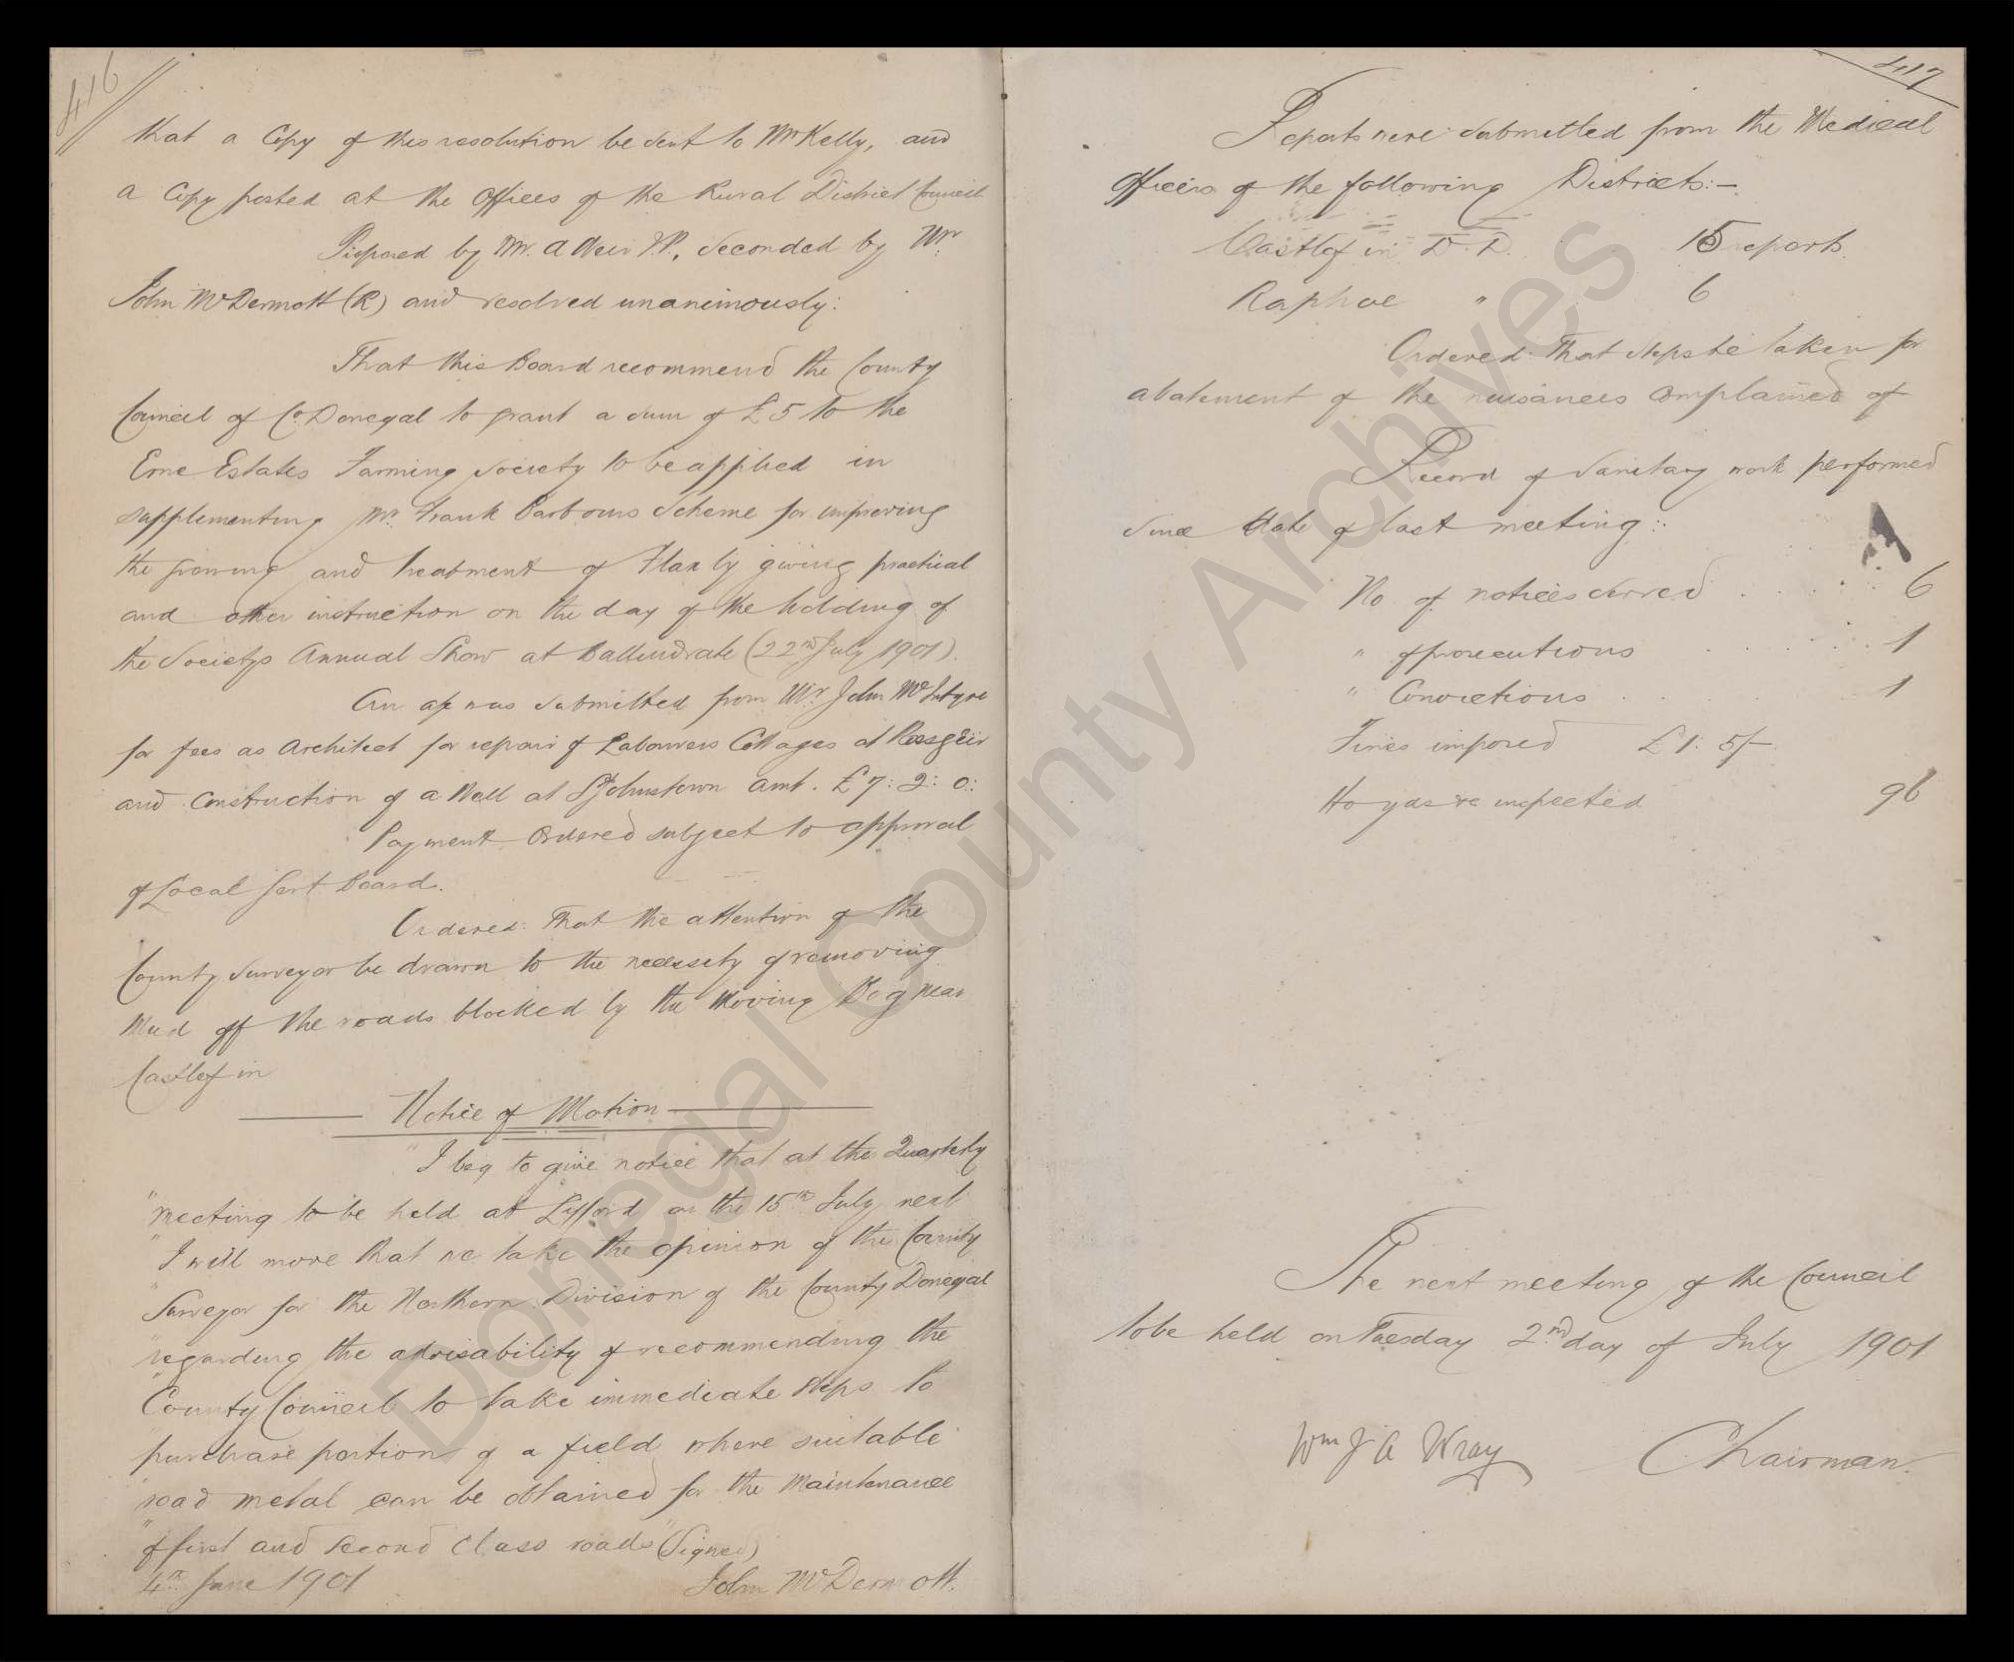 416
that a Copy of this resolution be sent to Mr Kelly, and
a Copy posted at the Offices of the Rural District Council
Proposed by Mr. A Weir J.P., Seconded by Mr
John McDermott (R) and resolved unanimously:
That this Board recommend the County
Council of Co Donegal to grant a sum of £5 to the
Erne Estates Farming Society to be applied in
supplementing Mr. Frank Barbours Scheme for improving
the growing and treatment of Flax by giving practical
and other instruction on the day of the holding of
the Societys Annual Show at Ballindrate (22nd July 1901).
An a/c was submitted from Mr John McIntyre
for fees as Architect for repair of Labourers Cottages at Rossgeir
and Construction of a Wall at St Johnstown amt. £7: 2: 0:
Payment Ordered subject to approval
of Local Govt Board.
Ordered: That the attention of the
County Surveyor be drawn to the necessity of removing
Mud off the roads blocked by the Moving Bog near
Castlefin
Notice of Motion
"I beg to give notice that at the Quarterly
"meeting to be held at Lifford on the 15th July next
"I will move that we take the opinion of the County
"Surveyor for the Northern Division of the County Donegal
"regarding the advisability of recommending the
"County Council to take immediate steps to
"purchase portion of a field where suitable
"road metal can be obtained for the Maintenance
"of first and second class roads" (Signed)
4th June 1901 John McDermott.
417
Reports were submitted from the Medical
Officers of the following Districts:-
Castlefin D.D. 15 reports.
Raphoe " 6
Ordered: That steps be taken for
abatement of the nuisances complained of
Record of Sanitary work performed
since date of last meeting:
No of notices served . . . . . 6
" of prosecutions . . . . . . 1
" Convictions . . 1
Fines imposed £1: 5/-
No yds re inspected 96
The next meeting of the Council
to be held on Tuesday 2nd day of July 1901
Wm J A Wray Chairman.
Donegal County Archives